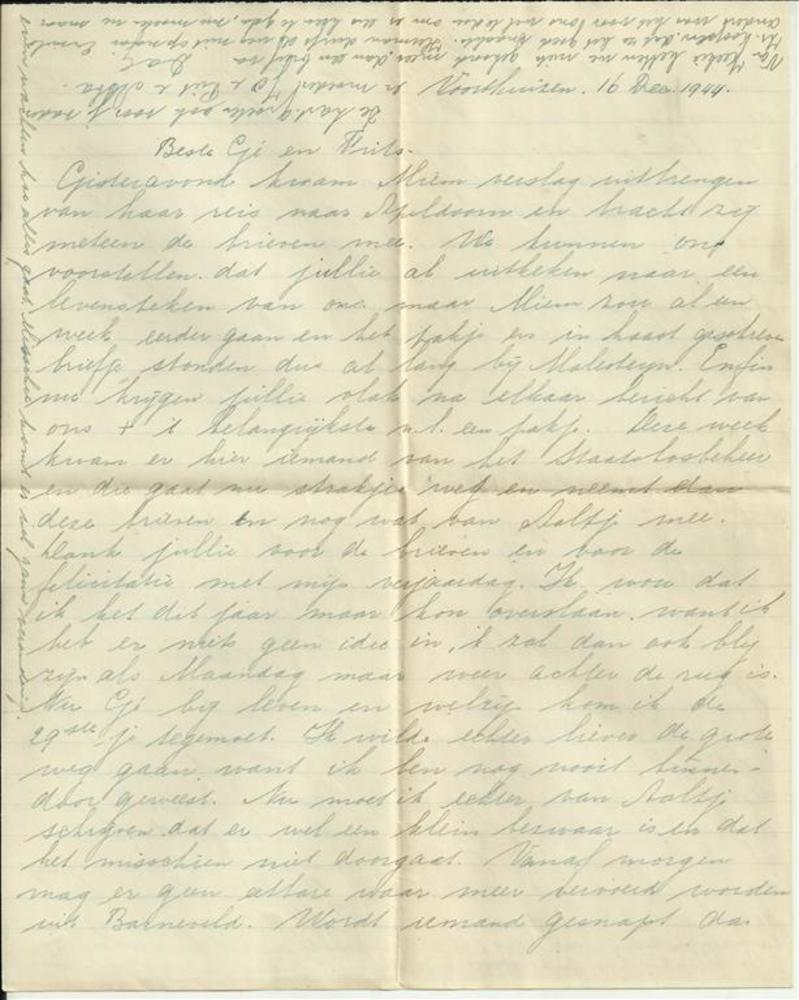 Voorthuizen. 16 Dec. 1944.
Beste Gé en Frits.
Gisteravond kwam Miem verslag uitbrengen
van haar reis naar Apeldoorn en bracht zij
meteen de brieven mee. We kunnen ons
voorstellen dat jullie al uitkeken naar een
levensteken van ons maar Miem zou al een
week eerder gaan en het pakje en in haast geschreven
briefje stonden dus al lang bij Malesteyn. Enfin
nu krijgen jullie vlak na elkaar bericht van
ons + 't belangrijkste n.l. een pakje. Deze week
kwam er hier iemand van het Staatsbosbeheer
en die gaat nu strakjes weg en neemt dan
deze brieven en nog wat van Aaltje mee.
Dank jullie voor de brieven en voor de
felicitatie met mijn verjaardag. Ik wou dat
ik het dit jaar maar kon overslaan want ik
heb er niets geen idee in, ik zal dan ook blij
zijn als Maandag maar weer achter de rug is.
Nu Gé bij leven en welzijn kom ik de
29ste je tegemoet. Ik wilde echter liever de grote
weg gaan, want ik ben nog nooit binnen-
door geweest. Nu moet ik echter van Aaltje
schrijven dat er wel een klein bezwaar is en dat
het misschien niet doorgaat. Vanaf morgen
mag er geen eetbare waar meer vervoerd worden
uit Barneveld. Wordt iemand gesnapt da
De hart. groeten ook van